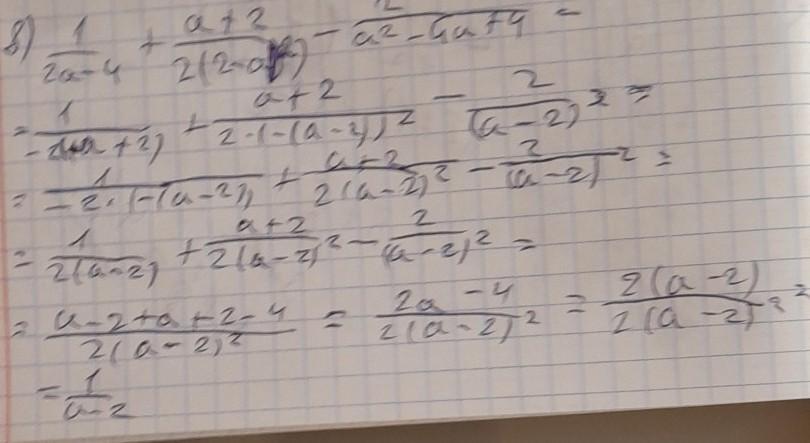 8) 1/(2a-4) + (a+2)/(2(2-a)²) - 2/(a²-4a+4) =
= 1/(-2(-a+2)) + (a+2)/(2·(-(a-2))²) - 2/(a-2)² =
= 1/(-2·(-(a-2))) + (a+2)/(2(a-2)²) - 2/(a-2)² =
= 1/(2(a-2)) + (a+2)/(2(a-2)²) - 2/(a-2)² =
= (a-2+a+2-4)/(2(a-2)²) = (2a-4)/(2(a-2)²) = 2(a-2)/(2(a-2)²) =
= 1/(a-2)